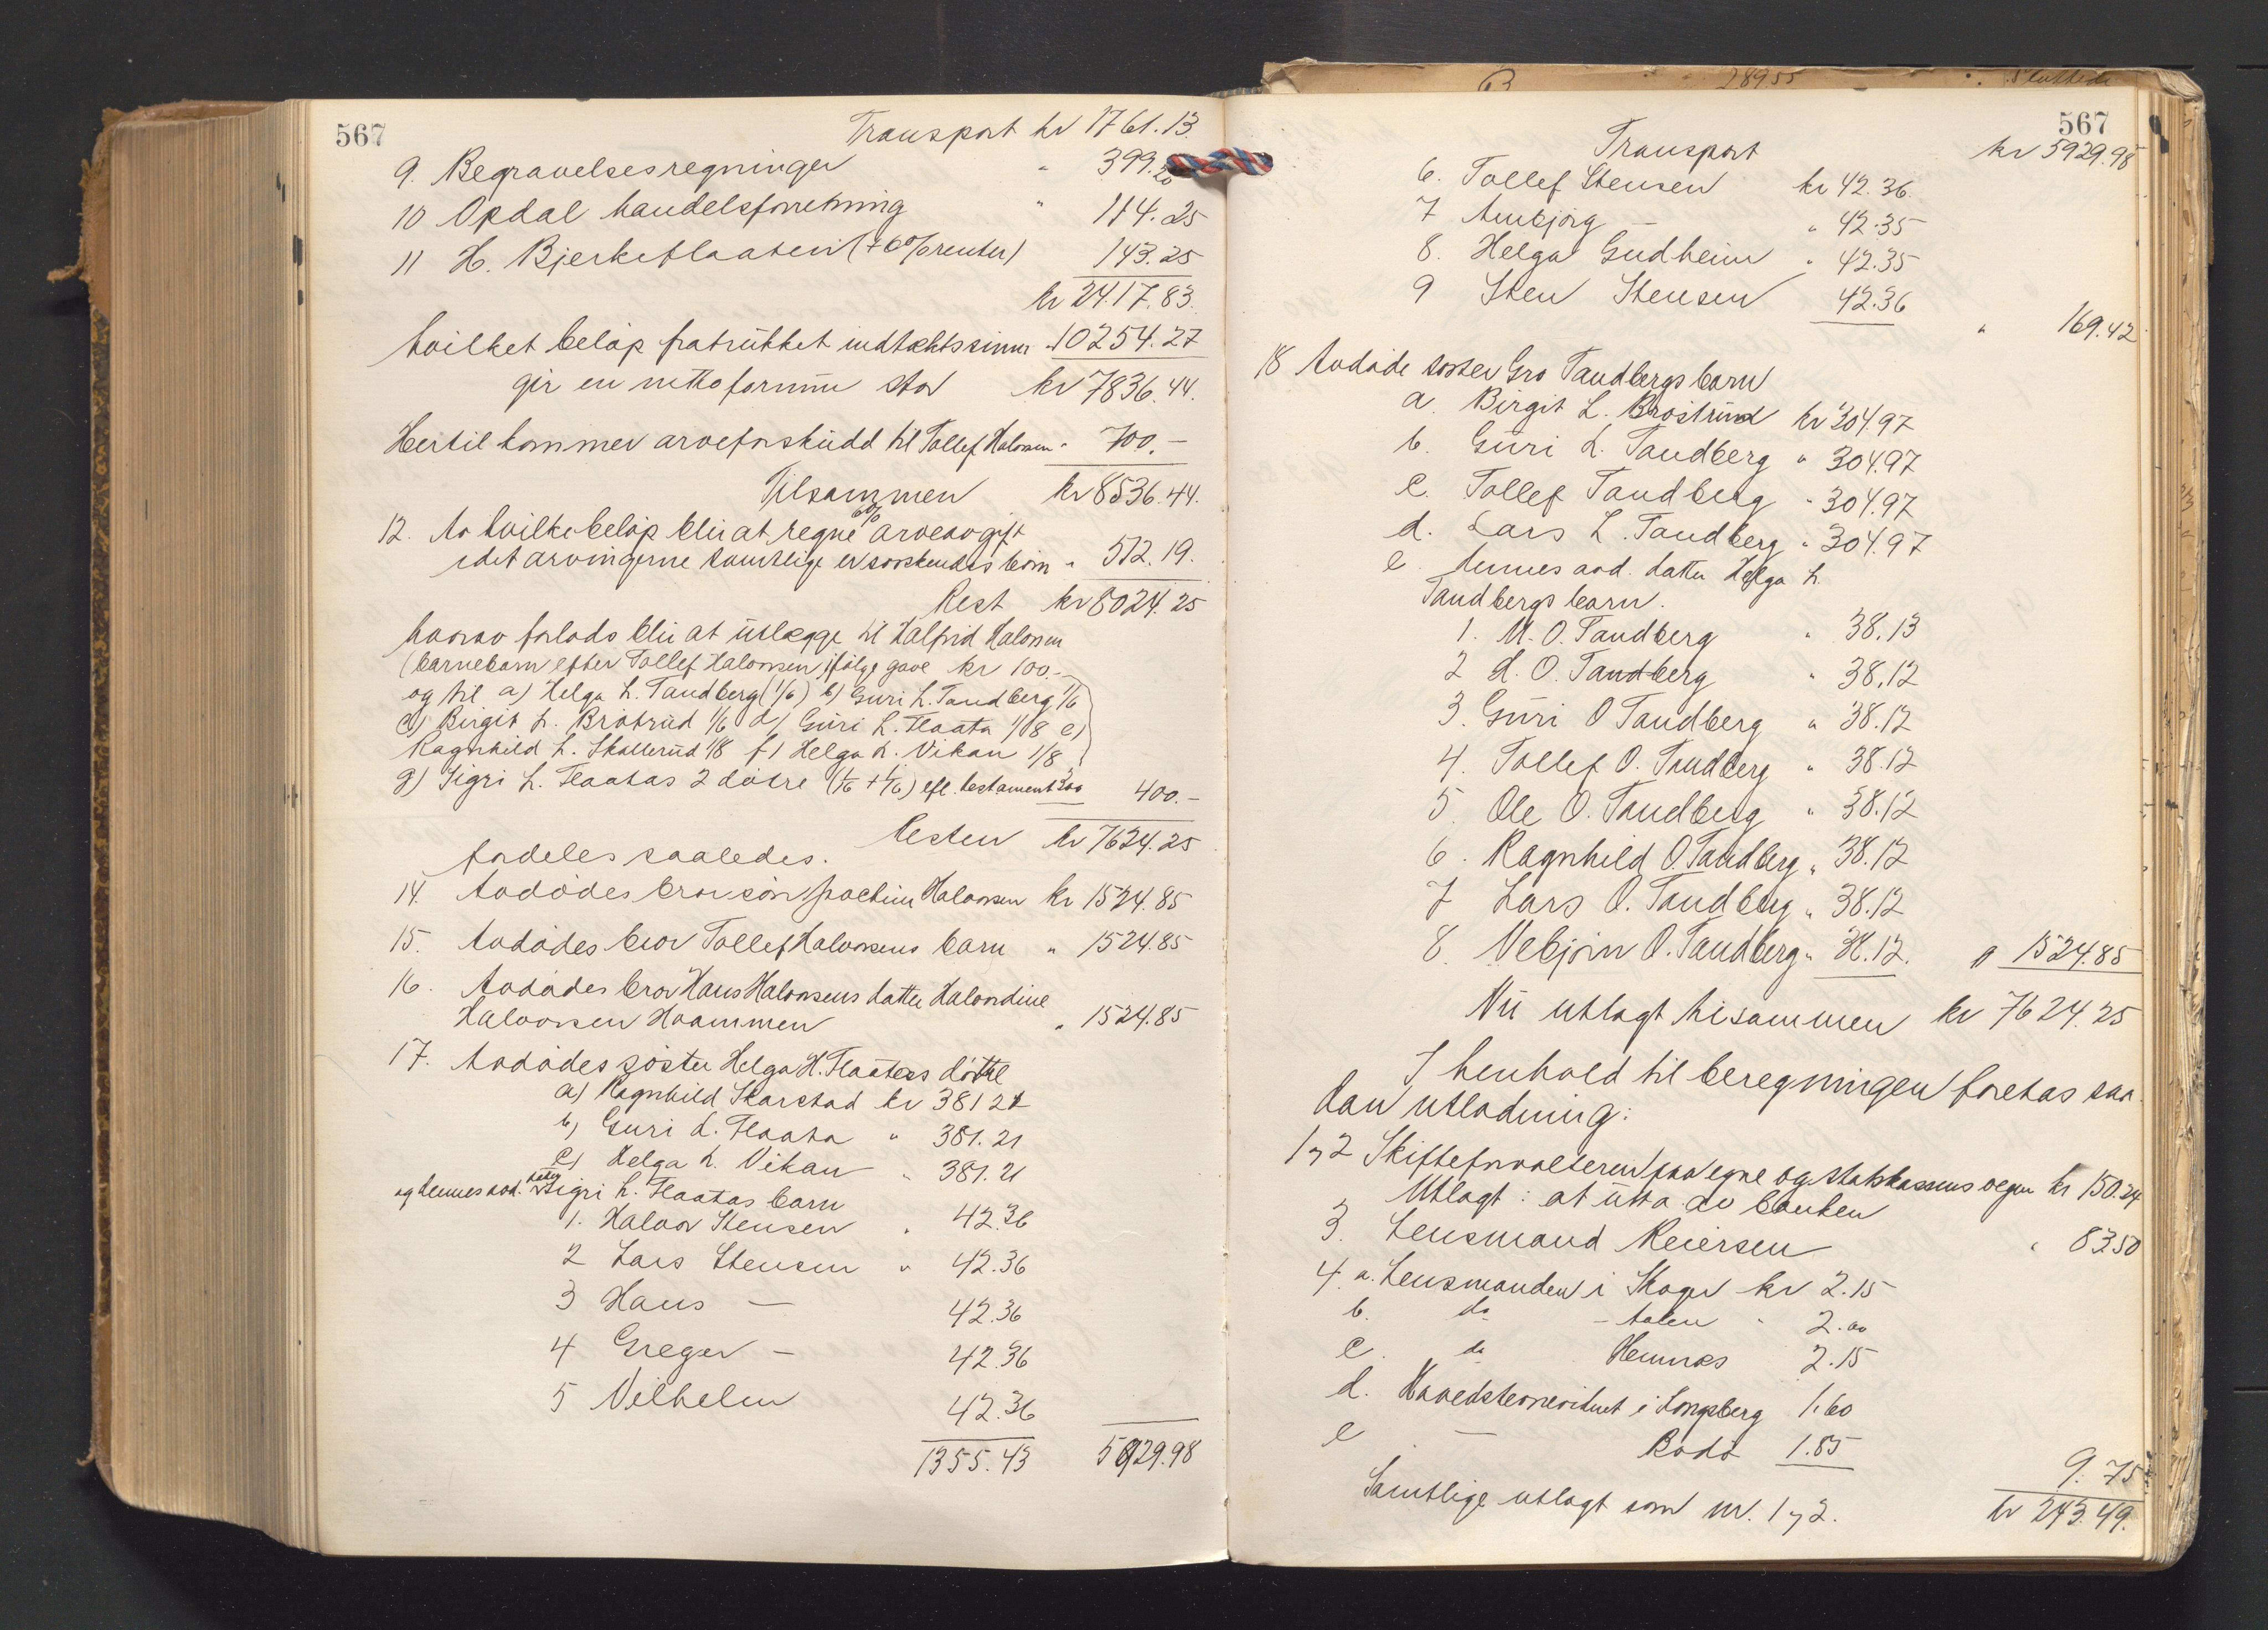 567
Transport kr 1761.13.
9. Begravelsesregninger " 399.20
10 Opdal handelsforretning " 114.25
11 H. Bjerkeflaaten (+6% renter) 143.25
kr 2417.83.
hvilket beløp fratrukket indtægtssum 10254.27
gir en nettoformue stor kr 7836.44.
Hertil kommer arveforskudd til Tollef Halvorsen " 700.-
Tilsammen kr 8536.44.
12. Av hvilke beløp blir at regne 6% arveavgift
idet arvingerne samtlige er søskendes børn " 512.19.
Rest kr 8024.25
hvorav forlods blir at utlægge til Halfrid Halvorsen
(barnebarn efter Tollef Halvorsen ifølge gave kr 100.-
og til a) Helga L. Tandberg (1/6) b) Guri L. Tandberg 1/6
c) Birgit L. Brøstrud 1/6 d) Guri L. Flaata 1/18 e)
Ragnhild L. Skallerud 1/8 f) Helga L. Vikan 1/8
g) Sigri L. Flaatas 2 døtre (1/6 + 1/6) efl. testament 300 400.-
Resten kr 7624.25
fordeles saaledes.
14. Avdødes brorsøn Joachim Halvorsen kr 1524.85
15. Avdødes bror Tollef Halvorsens barn " 1524.85
16. Avdødes bror Hans Halvorsens datter Halvordine
Halvorsen Hvammen " 1524.85
17. Avdødes søster Helga H. Flaatas døttre
a) Ragnhild Skarstad kr 381 21
b) Guri L. Flaata " 381.21
c) Helga L. Vikan " 381.21
og hennes avd. datter Sigri L. Flaatas barn
1. Halvor Stensen " 42.36
2 Lars Stensen " 42.36
3 Hans — 42.36
4 Greger — 42.36
5 Vilhelm 42.36
1355.43 5929.98
28955
567
Transport kr 5929.98
6. Tollef Stensen kr 42.36.
7 Ambjørg — " 42.35
8. Helga Gudheim " 42.35
9 Sten Stensen 42.36
" 169.42
18 Avdøde søster Gro Tandbergs barn
a. Birgit L. Brøstrud kr 304.97
b. Guri L. Tandberg " 304.97
c. Tollef Tandberg " 304.97
d. Lars L. Tandberg " 304.97
e hennes avd. datter Helga L.
Tandbergs barn.
1. M. O. Tandberg " 38.13
2 H. O. Tandberg " 38.12
3. Guri O Tandberg " 38.12
4. Tollef O. Tandberg " 38.12
5. Ole O. Tandberg " 38.12
6. Ragnhild O. Tandberg " 38.12
7 Lars O. Tandberg " 38.12
8. Vebjørn O. Tandberg " 38.12. " 1524.85
Nu utlagt tilsammen kr 7624.25
I henhold til beregningen foretas saa-
dan utlodning:
1 og 2 Skifteforvalteren paa egne og statskassens vegne kr 150.24
Utlagt: at utta av banken
3. Lensmand Reiersen " 83.50
4. a. Lensmanden i Skoger kr 2.15
b. do - " 2.00
c. do Hemnes 2.15
d. Hovedstevnevidnet i Kongsberg 1.60
e — Bodø 1.85
9.75
Samtlige utlagt som nr. 1 og 2. kr 243.49.